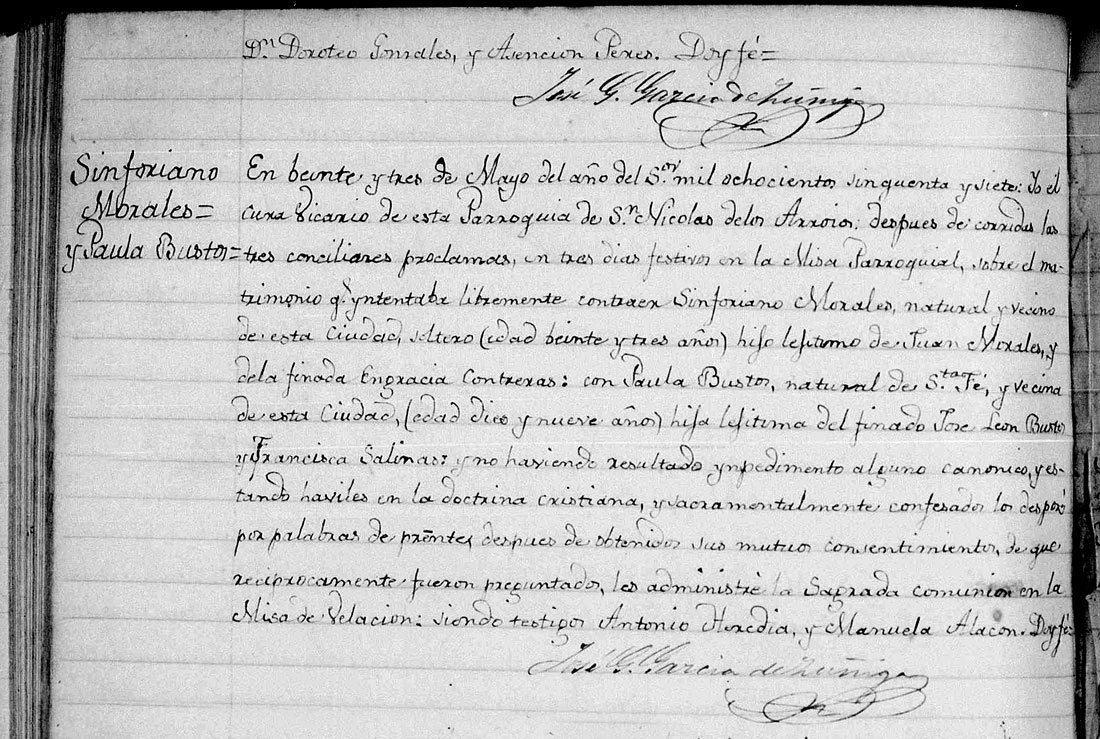 Dn. Doroteo Gonzales, y Asencion Peres. Doy fé=
José G. Garcia de Zúñiga
Sinforiano
Morales=
y Paula Bustos=
En beinte y tres de Mayo del año del S.or mil ochocientos sinquenta y siete: Yo el
cura Vicario de esta Parroquia de S.n Nicolas delos Arroios: despues de corridas las
tres conciliares proclamas, en tres dias festivos en la Misa Parroquial, sobre el ma-
trimonio q.e yntentaba libremente contraer Sinforiano Morales, natural y vecino
de esta Ciudad, soltero (edad beinte y tres años) hijo lejitimo de Juan Morales, y
dela finada Engracia Contreras: con Paula Bustos, natural de S.ta Fé, y vecina
de esta Ciudad, (edad dies y nueve años) hija lejitima del finado Jose Leon Bustos
y Francisca Salinas: y no haviendo resultado ynpedimento alguno canonico, y es-
tando haviles en la doctrina cristiana, y sacramentalmente confesados los desposé
por palabras de prẽnte, despues de obtenidos sus mutuos consentimientos, de que
reciprocamente fueron preguntados, les administré la Sagrada comunion en la
Misa de Velacion: siendo testigos Antonio Heredia, y Manuela Alacon. Doy fé=
José G. Garcia de Zúñiga